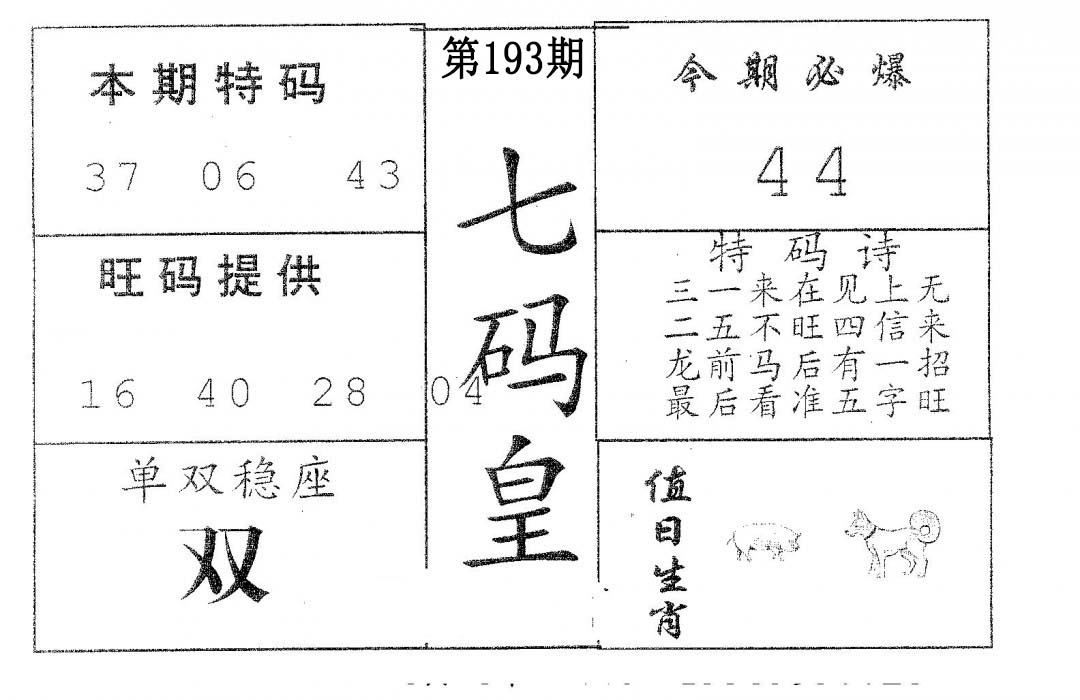 第193期
七码皇
本期特码
37 06 43
旺码提供
16 40 28 04
单双稳座
双
今期必爆
44
特码诗
三一来在见上无
二五不旺四信来
龙前马后有一招
最后看准五字旺
值日生肖